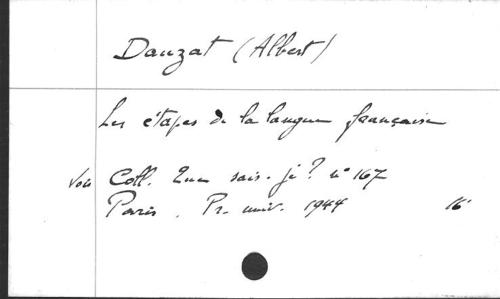 Dauzat (Albert)
Les étapes de la langue française
Voir Coll. Que sais-je? n° 167
Paris. Pr. univ. 1944 16°